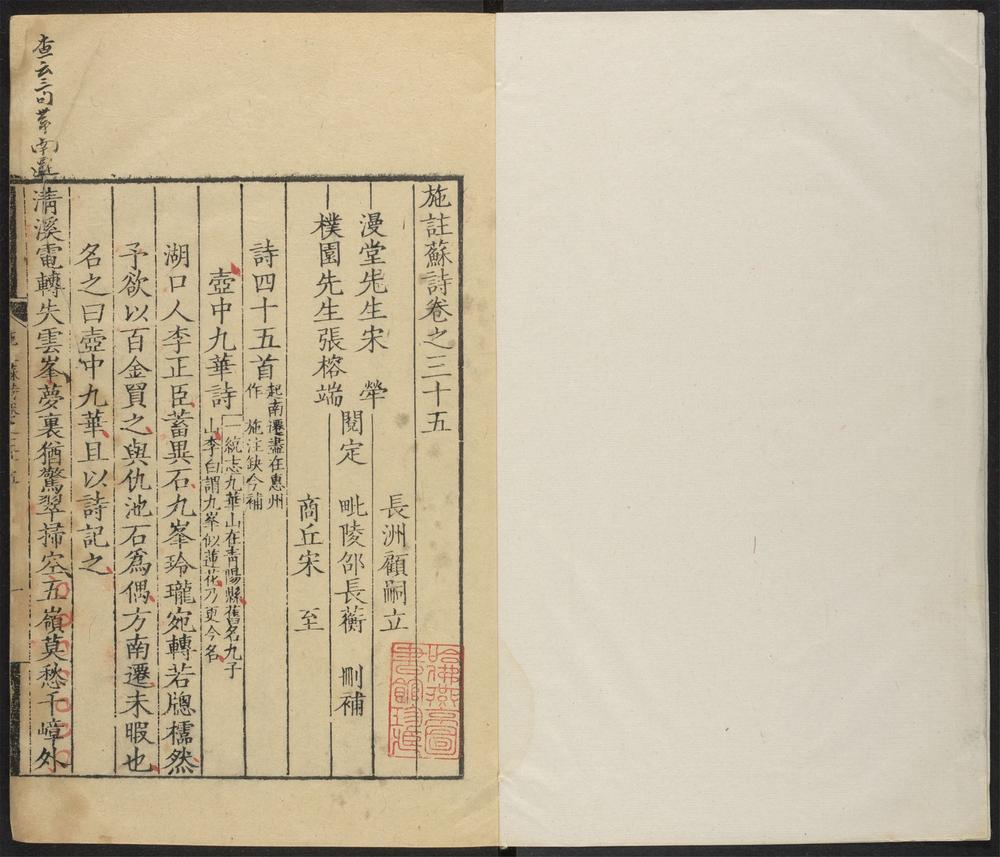 施註蘇詩卷之三十五
漫堂先生宋犖
樸園先生張榕端
閱定
長洲顧嗣立
毗陵邵長蘅
商丘宋至
刪補
詩四十五首
起南遷盡在惠州
作 施注缺今補
壺中九華詩
一統志九華山在青陽縣舊名九子
山李白謂九峯似蓮花乃更今名
湖口人李正臣蓄異石九峯玲瓏宛轉若牕櫺然
予欲以百金買之與仇池石爲偶方南遷未暇也
名之曰壺中九華且以詩記之
清溪電轉失雲峯夢裏猶驚翠掃空五嶺莫愁千嶂外
查云三句帶南遷
哈佛燕京圖書館珍藏